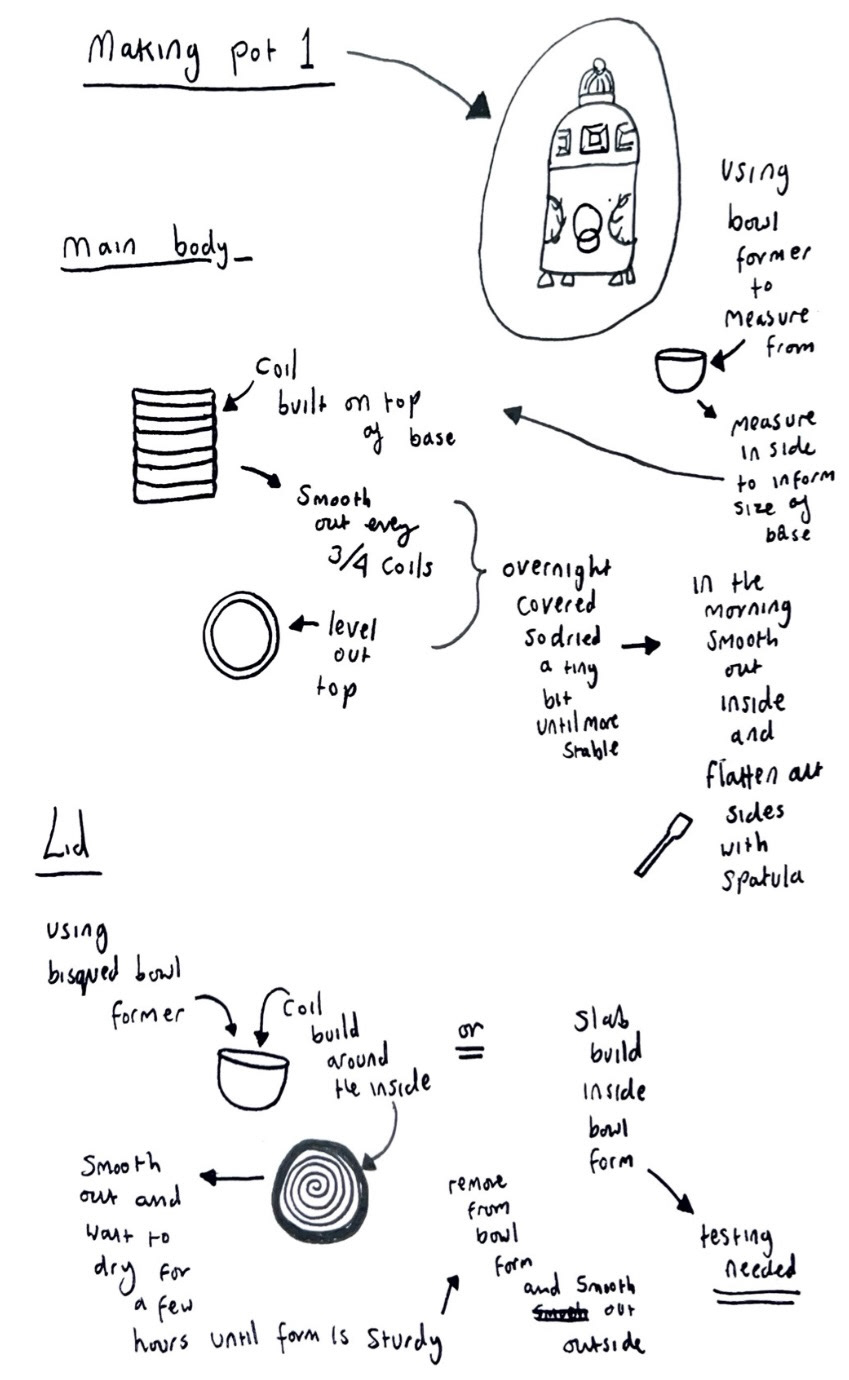 Making pot 1
Main body
Using
bowl
former
to
measure
from
measure
in side
to inform
size of
base
Coil
built on top
of base
Smooth
out every
3/4 coils
level
out
top
overnight
covered
so dried
a tiny
bit
until more
stable
in the
morning
smooth
out
inside
and
flatten out
sides
with
spatula
Lid
using
bisqued bowl
former
coil
build
around
the inside
or
slab
build
inside
bowl
form
testing
needed
Smooth
out and
wait to
dry for
a few
hours until form is sturdy
remove
from
bowl
form
and smooth
out
outside